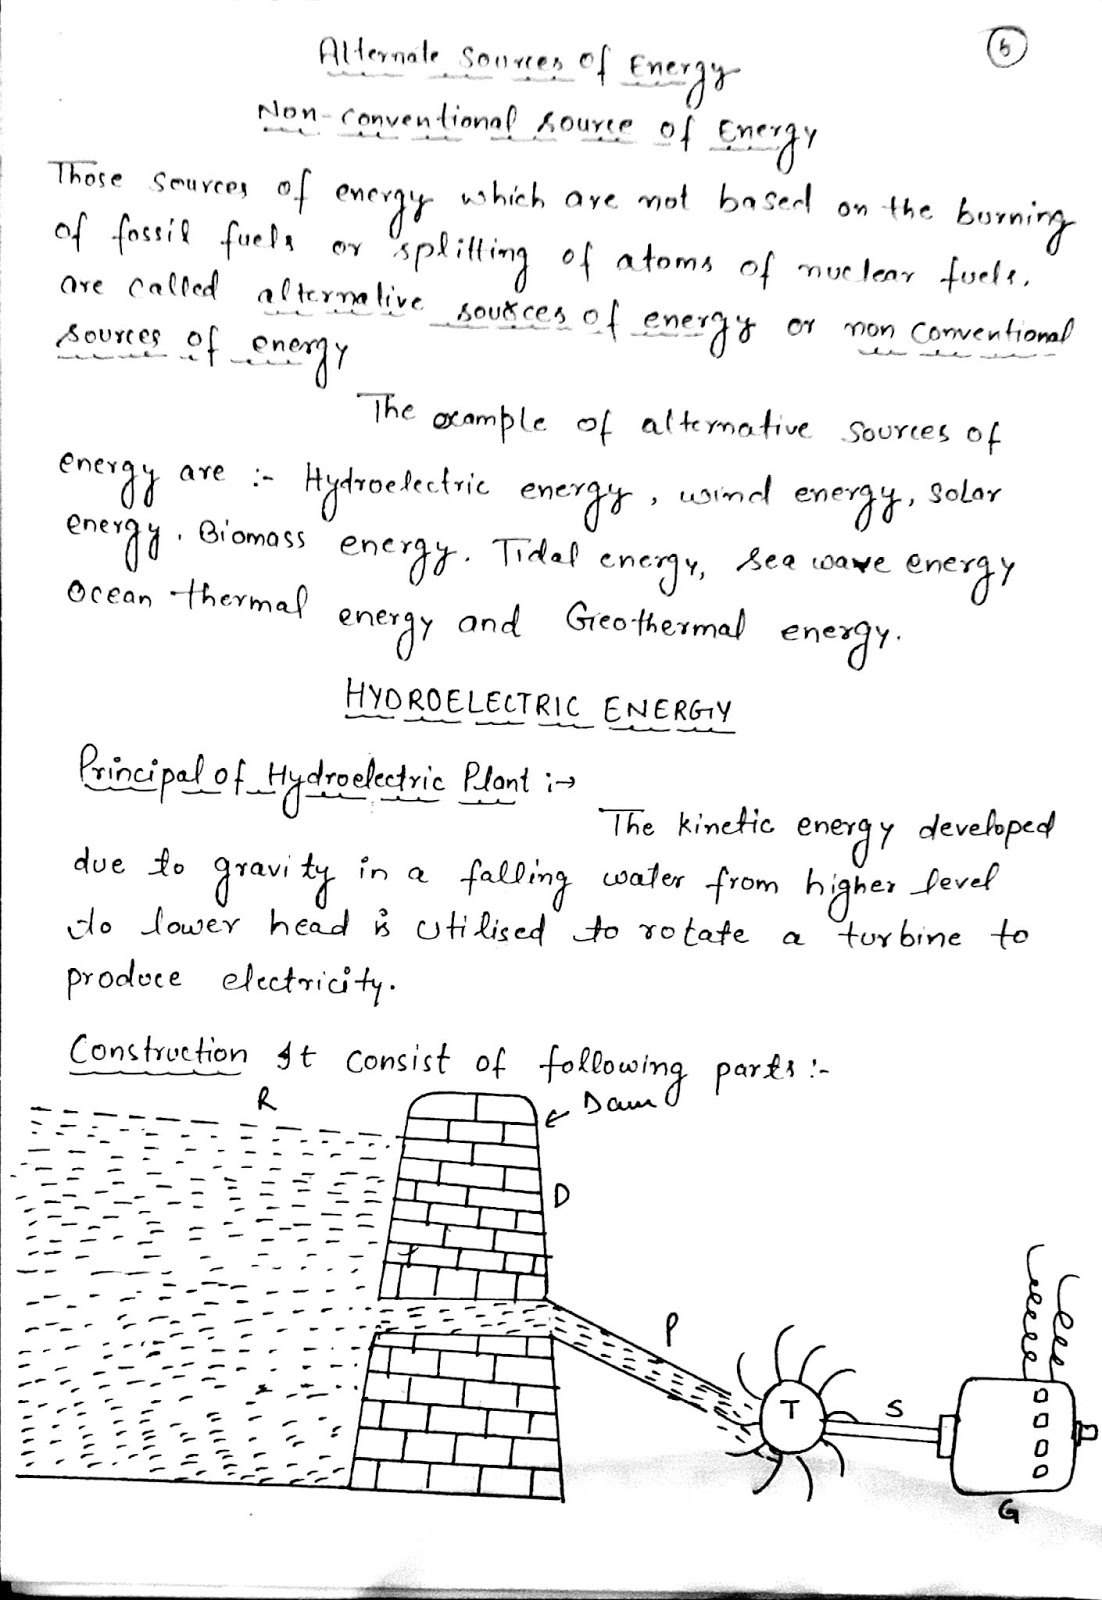 5
Alternate Sources of Energy
Non-conventional source of Energy
Those sources of energy which are not based on the burning
of fossil fuels or splitting of atoms of nuclear fuels,
are called alternative sources of energy or non conventional
sources of energy
The example of alternative sources of
energy are :- Hydroelectric energy, wind energy, Solar
energy, Biomass energy. Tidal energy, sea wave energy
Ocean thermal energy and Geothermal energy.
HYDROELECTRIC ENERGY
Principal of Hydroelectric Plant :→
The kinetic energy developed
due to gravity in a falling water from higher level
to lower head is utilised to rotate a turbine to
produce electricity.
Construction It consist of following parts :-
R
Dam
D
P
T
S
G